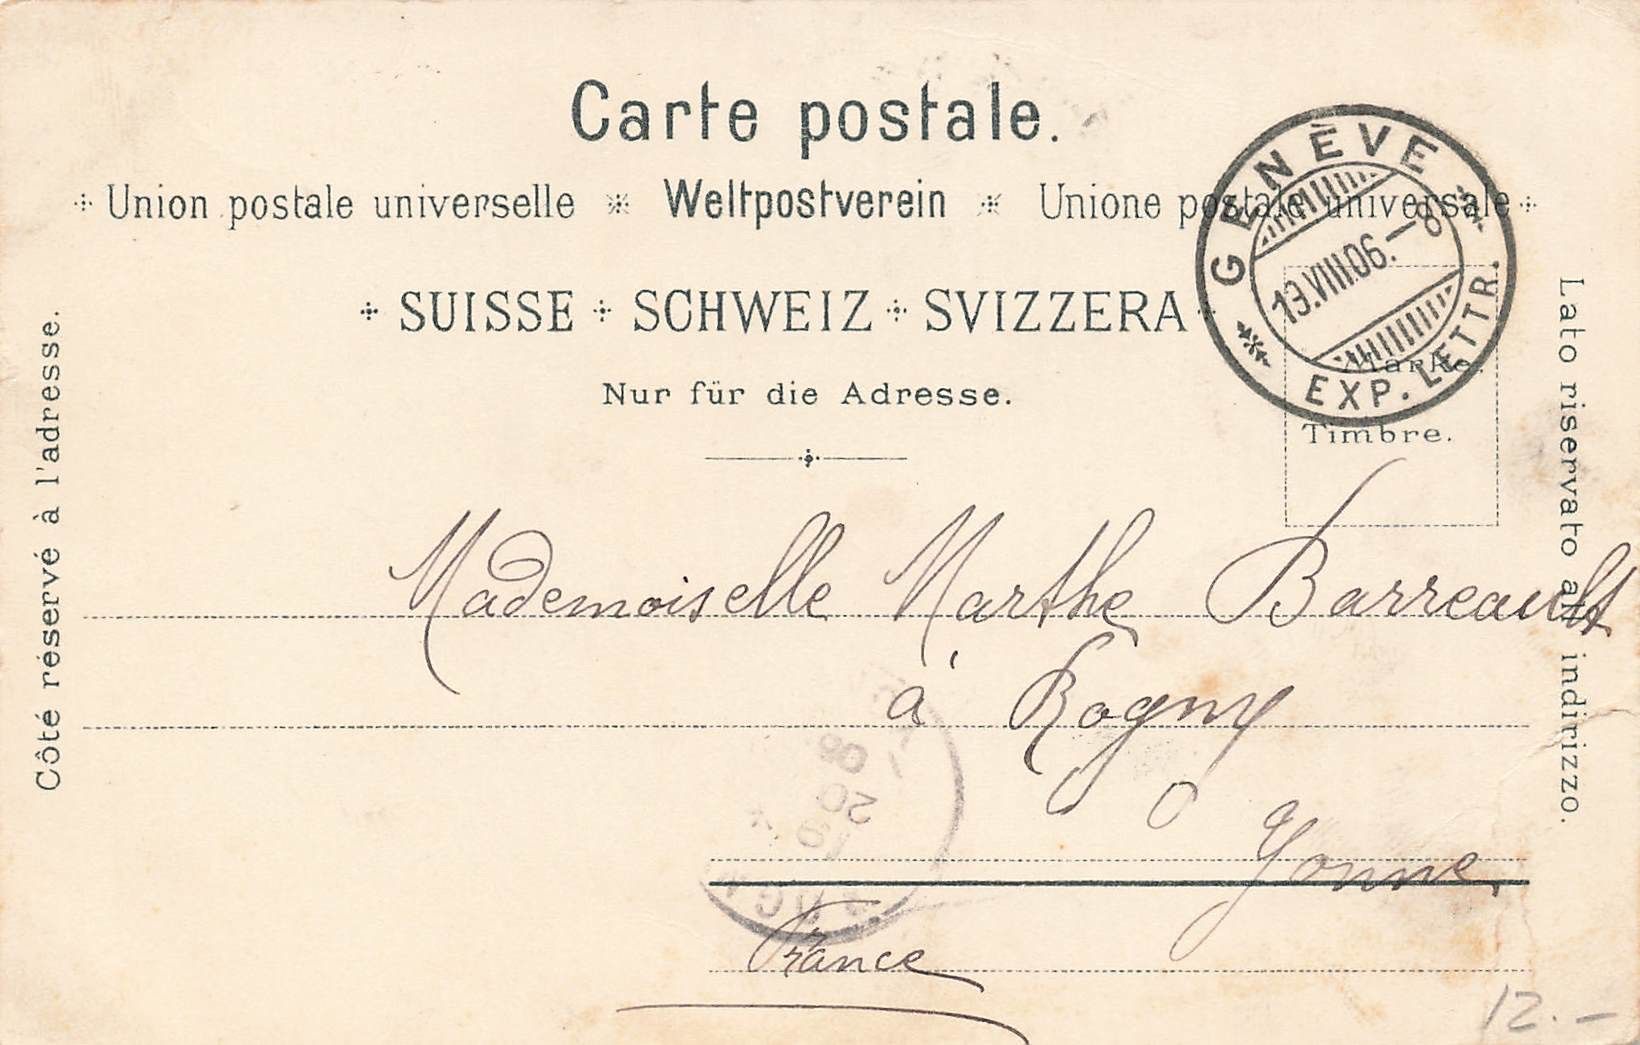 Carte postale.
Union postale universelle Weltpostverein Unione postale universale
SUISSE SCHWEIZ SVIZZERA
Nur für die Adresse.
GENÈVE
19.VIII.06.—8
EXP. LETTR.
Marke.
Timbre.
Côté réservé à l'adresse.
Lato riservato all' indirizzo.
Mademoiselle Marthe Barreault
à Rogny
Yonne
France
20
06
12.-